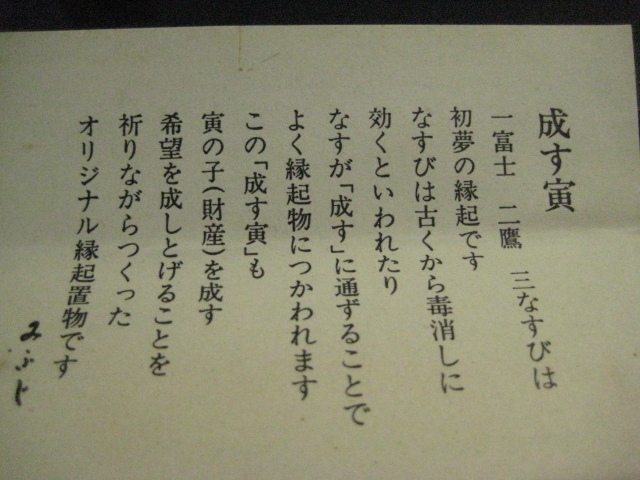 成す寅
一富士 二鷹 三なすびは
初夢の縁起です
なすびは古くから毒消しに
効くといわれたり
なすが「成す」に通ずることで
よく縁起物につかわれます
この「成す寅」も
寅の子(財産)を成す
希望を成しとげることを
祈りながらつくった
オリジナル縁起置物です
みふじ